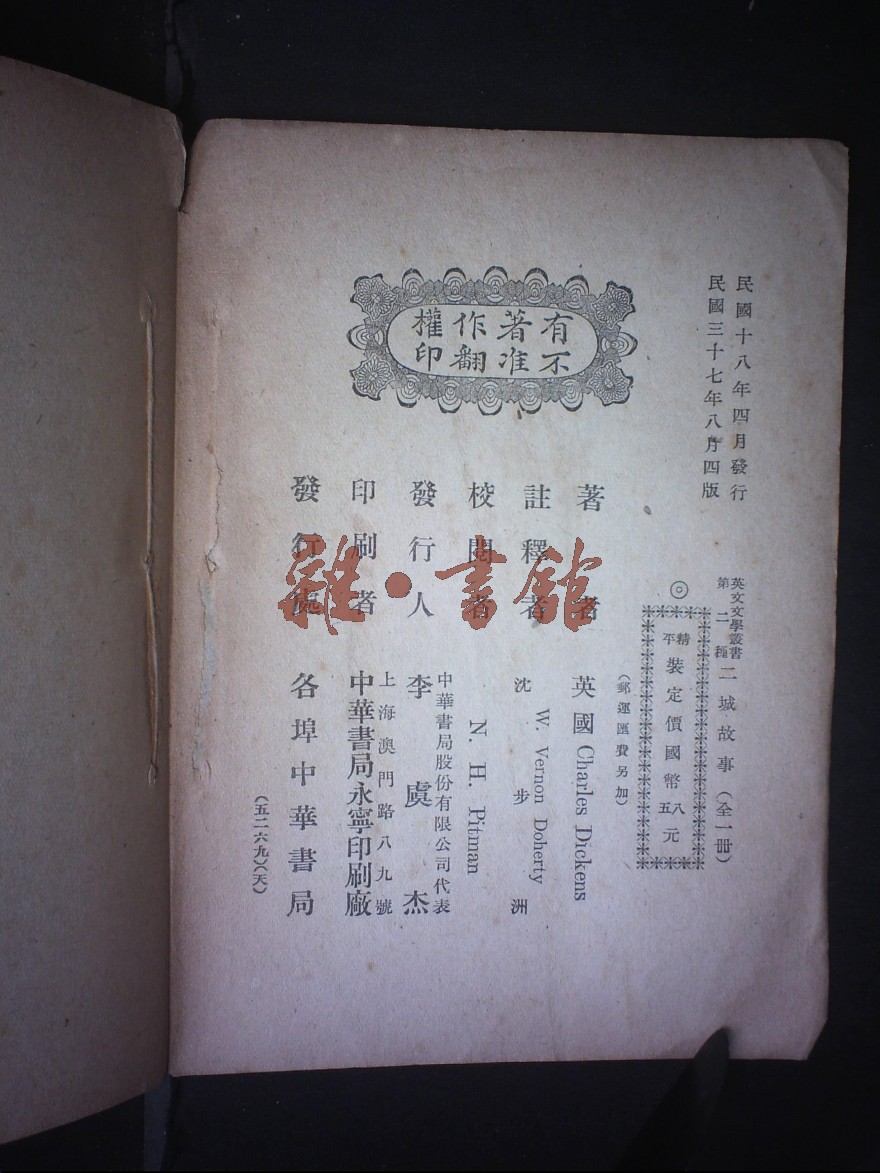 民國十八年四月發行
民國三十七年八月四版
英文文學叢書
第二種
二城故事（全一冊）
◎
精平裝定價國幣八五元
（郵運匯費另加）
有著作權
不准翻印
著者 英國 Charles Dickens
註釋者 W. Vernon Doherty
沈步洲
校閱者 N. H. Pitman
發行人 李虞杰
中華書局股份有限公司代表
印刷者 中華書局永寧印刷廠
上海澳門路八九號
發行處 各埠中華書局
（五二六九）（天）
雜·書館